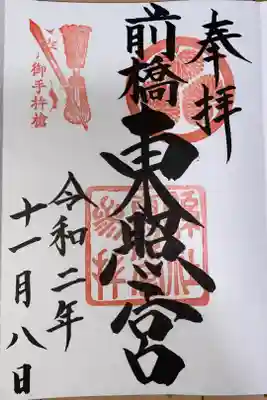 奉拝
前橋東照宮
令和二年
十一月八日
御手杵槍